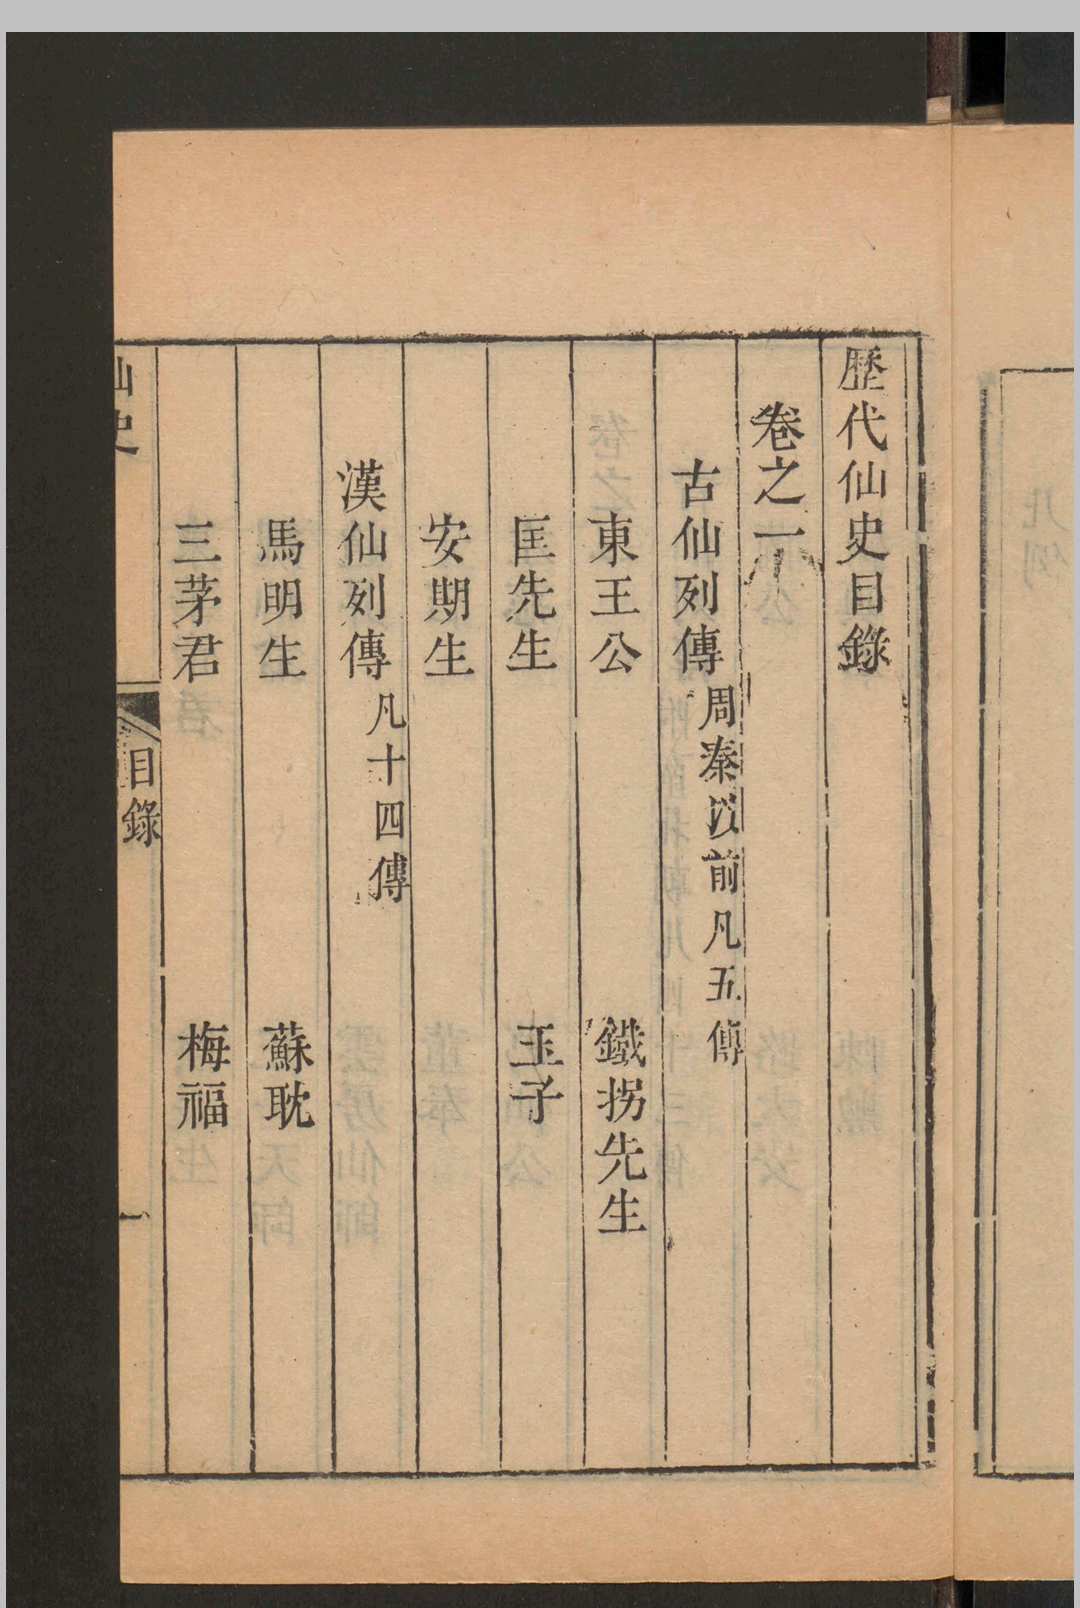 歷代仙史目錄
卷之一
古仙列傳周秦以前凡五傳
東王公 鐵拐先生
匡先生 玉子
安期生
漢仙列傳凡十四傳
馬明生 蘇耽
三茅君 梅福
仙史 目錄 一